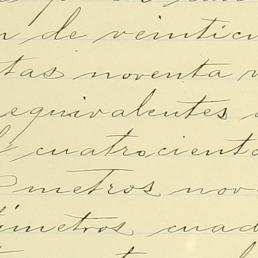 n de veintic
tas noventa
equivalentes
cuatrocienta
metros nov
tímetros cuad